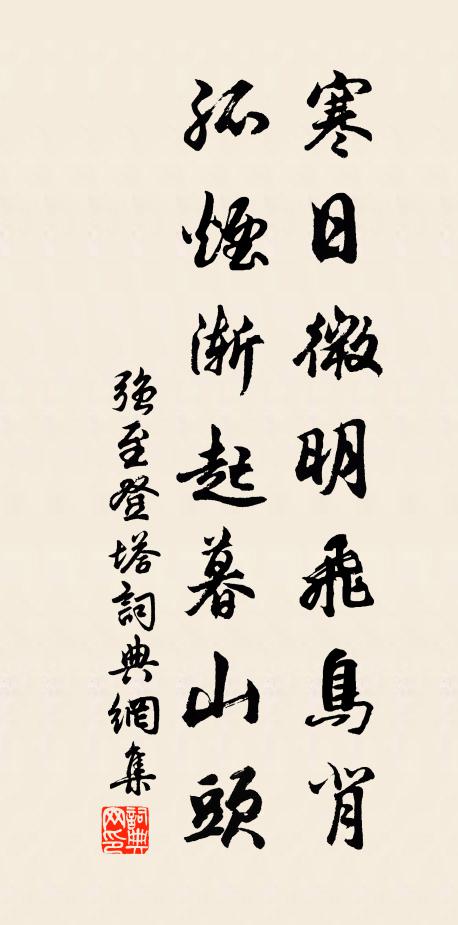 寒日微明飛鳥背
孤煙漸起暮山頭
強至登塔詞典網集
詞典網印